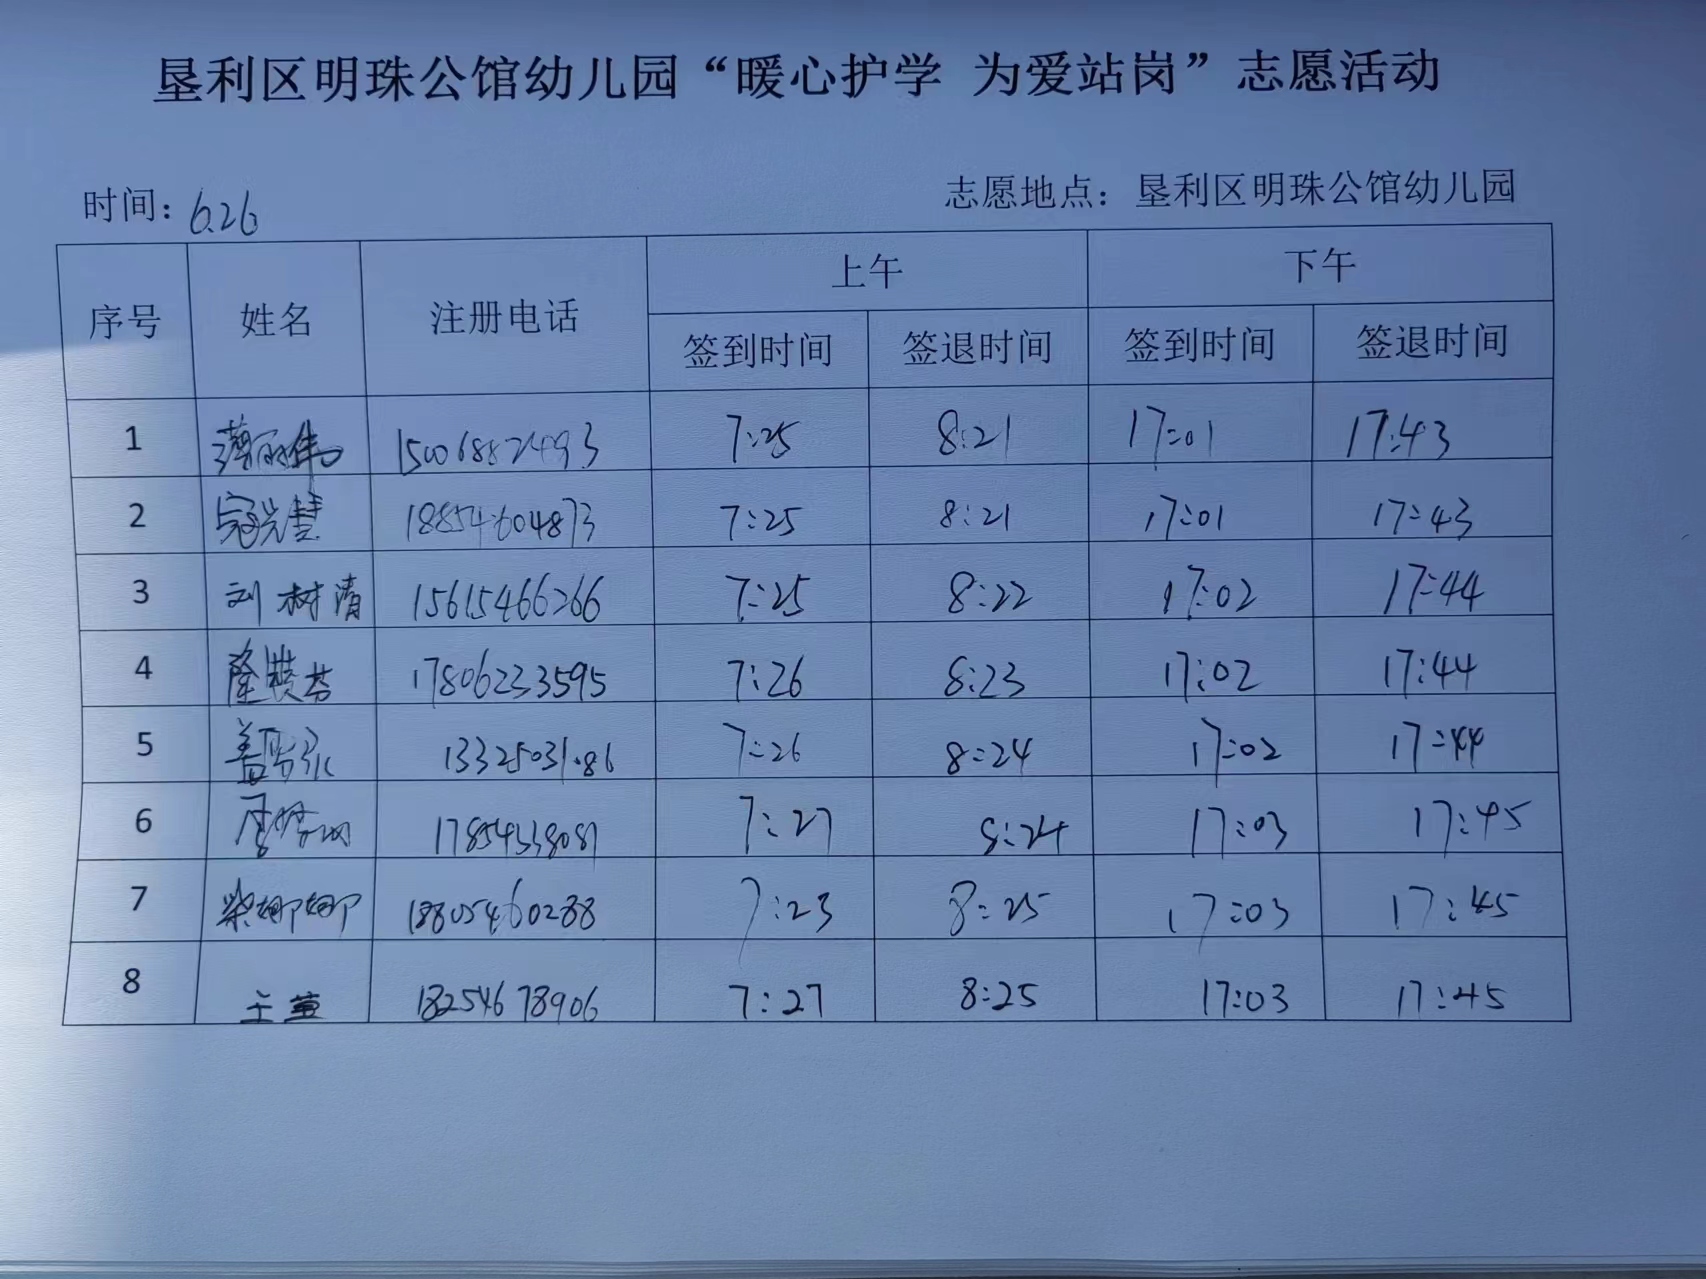 垦利区明珠公馆幼儿园“暖心护学 为爱站岗”志愿活动
时间：6.26 志愿地点：垦利区明珠公馆幼儿园
序号 姓名 注册电话 上午 下午
签到时间 签退时间 签到时间 签退时间
1 薄丽伟 15006882493 7:25 8:21 17:01 17:43
2 寇光慧 18854604873 7:25 8:21 17:01 17:43
3 刘树清 15615466266 7:25 8:22 17:02 17:44
4 隆 17806233595 7:26 8:23 17:02 17:44
5 盖 7:26 8:24 17:02 17:44
6 7:27 8:24 17:03 17:45
7 柴娜娜 18805460288 7:23 8:25 17:03 17:45
8 王萱 18254678906 7:27 8:25 17:03 17:45